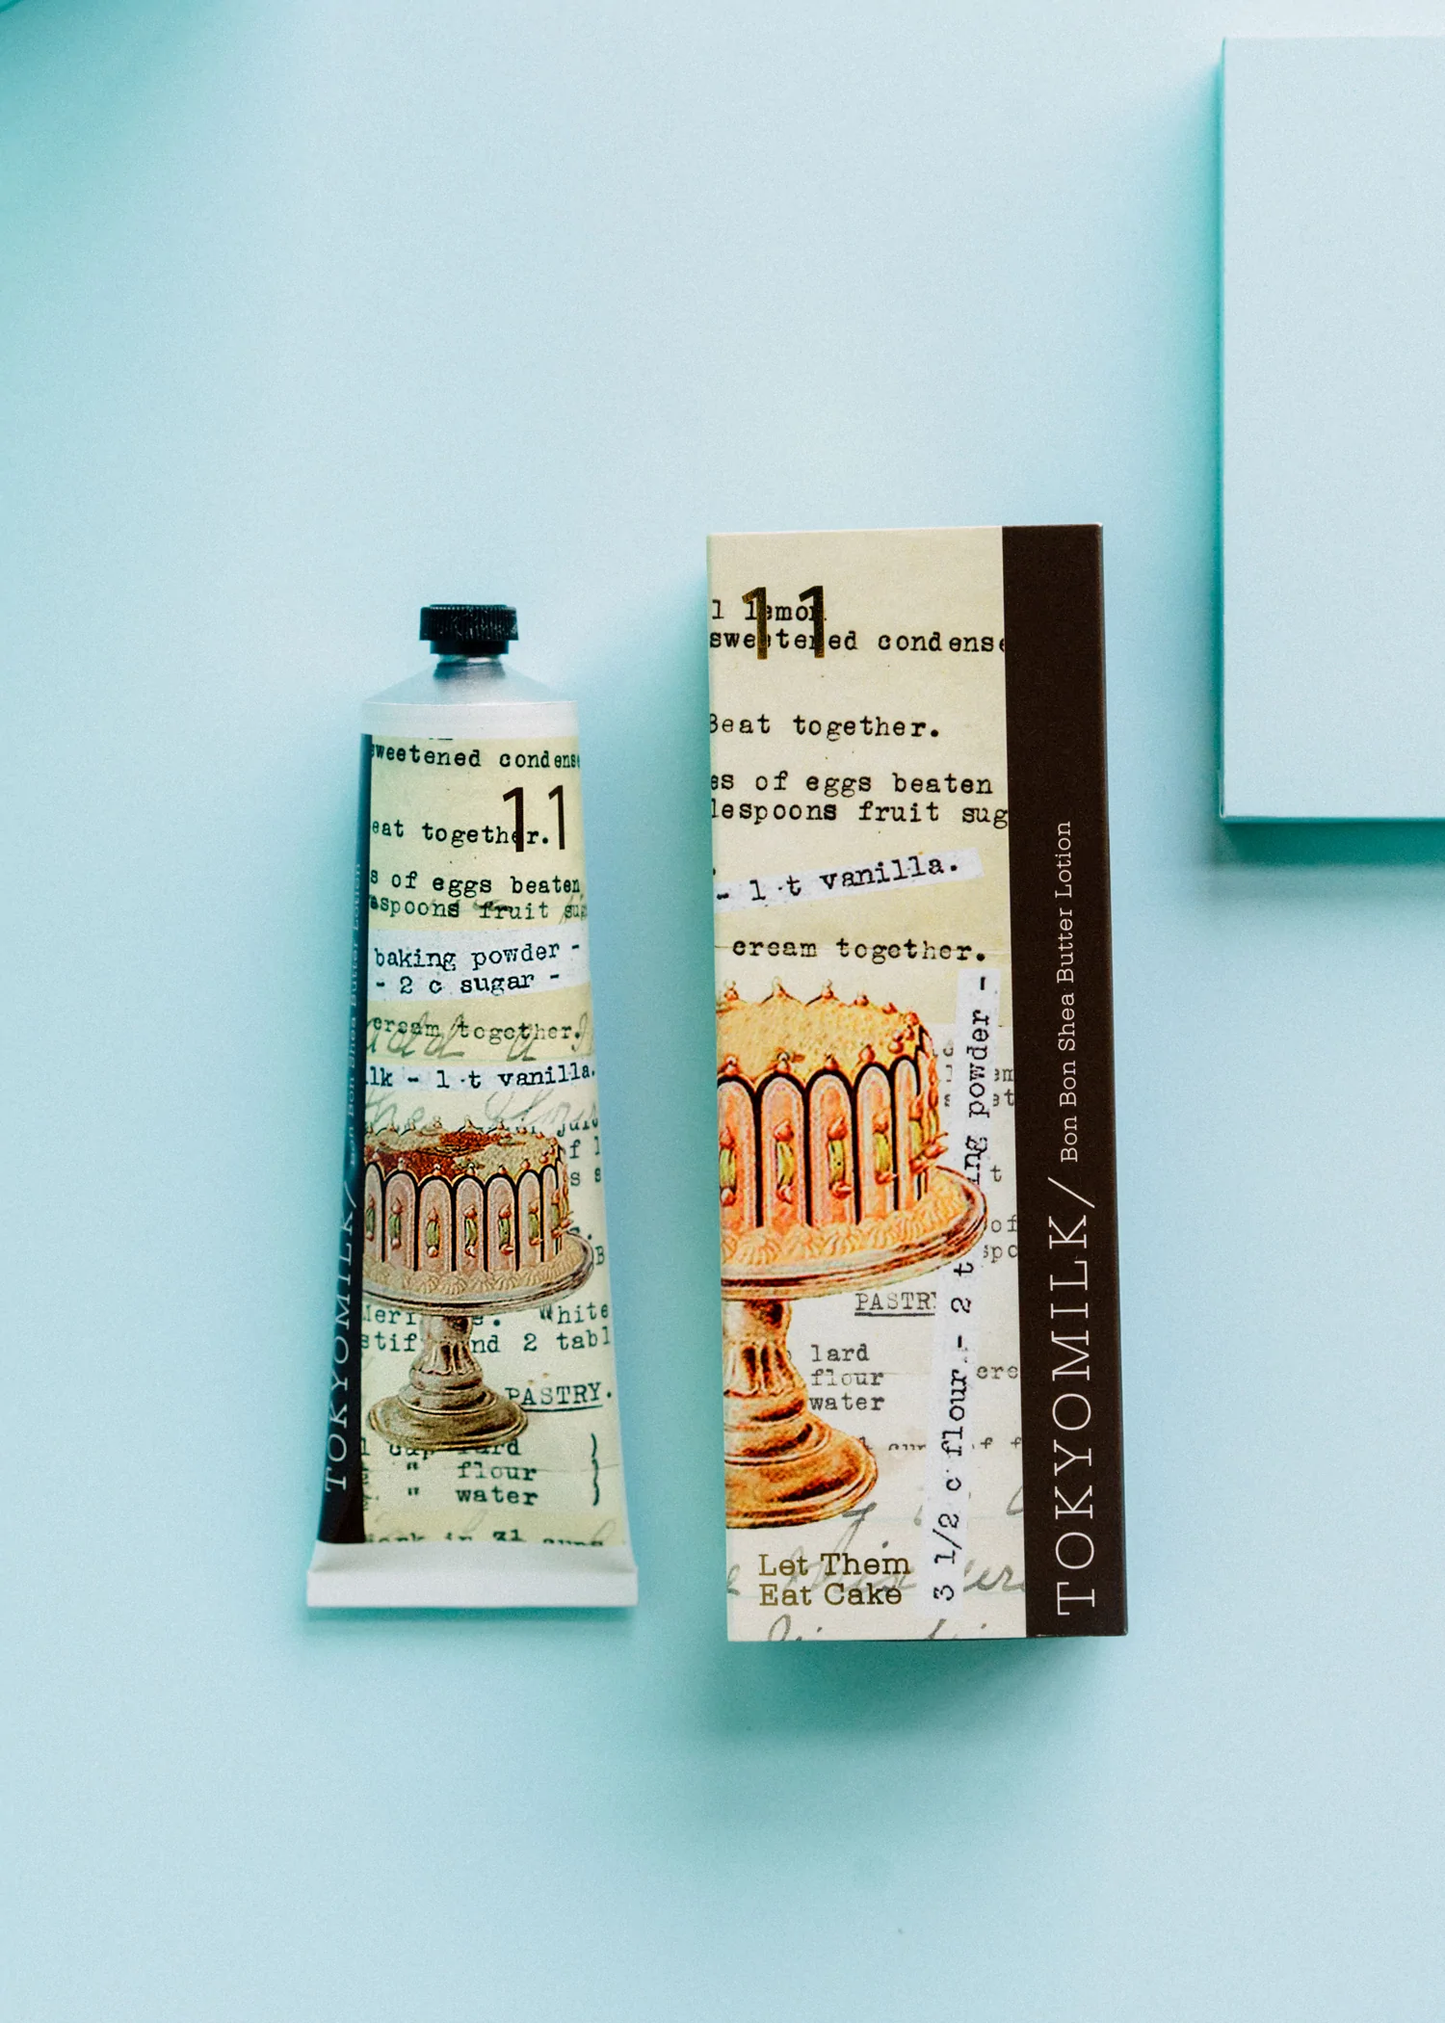 sweetened condense
11
eat together.
s of eggs beaten
spoons fruit sug
baking powder -
- 2 c sugar -
cream together.
lk - 1 t vanilla.
White
stif nd 2 tabl
PASTRY.
1 cup lard )
" flour )
" water )
TOKYOMILK/ Bon Bon Shea Butter Lotion
11
1 lemon
sweetened condense
Beat together.
es of eggs beaten
lespoons fruit sug
- 1 t vanilla.
cream together.
PASTR
lard
flour
water
3 1/2 c flour - 2 t ing powder -
Let Them
Eat Cake
TOKYOMILK/ Bon Bon Shea Butter Lotion